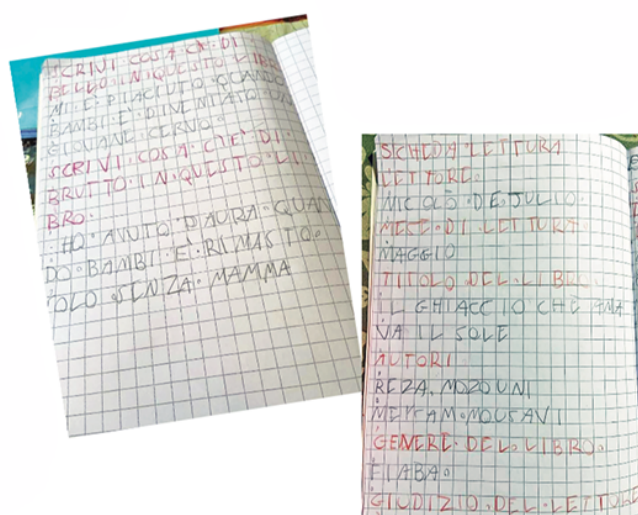 SCRIVI·COSA·C'È·DI·
BELLO·IN·QUESTO·LIBRO
MI·È·PIACIUTO·QUANDO
BAMBI·È·DIVENTATO·UN
GIOVANE·CERVO·
SCRIVI·COSA·C'È·DI·
BRUTTO·IN·QUESTO·LI
BRO·
HO·AVUTO·PAURA·QUAN
DO·BAMBI·È·RIMASTO·
OLO·SENZA·MAMMA
SCHEDA·LETTURA
LETTORE·
NICOLÒ·DE·JULIO·
MESE·DI·LETTURA·
MAGGIO
TITOLO·DEL·LIBRO·
IL GHIACCIO CHE AMA
VA IL SOLE
AUTORI
REZA·MOZOUNI
MEYSAM·MOUSAVI
GENERE·DEL·LIBRO·
FIABA·
GIUDIZIO·DEL·LETTORE